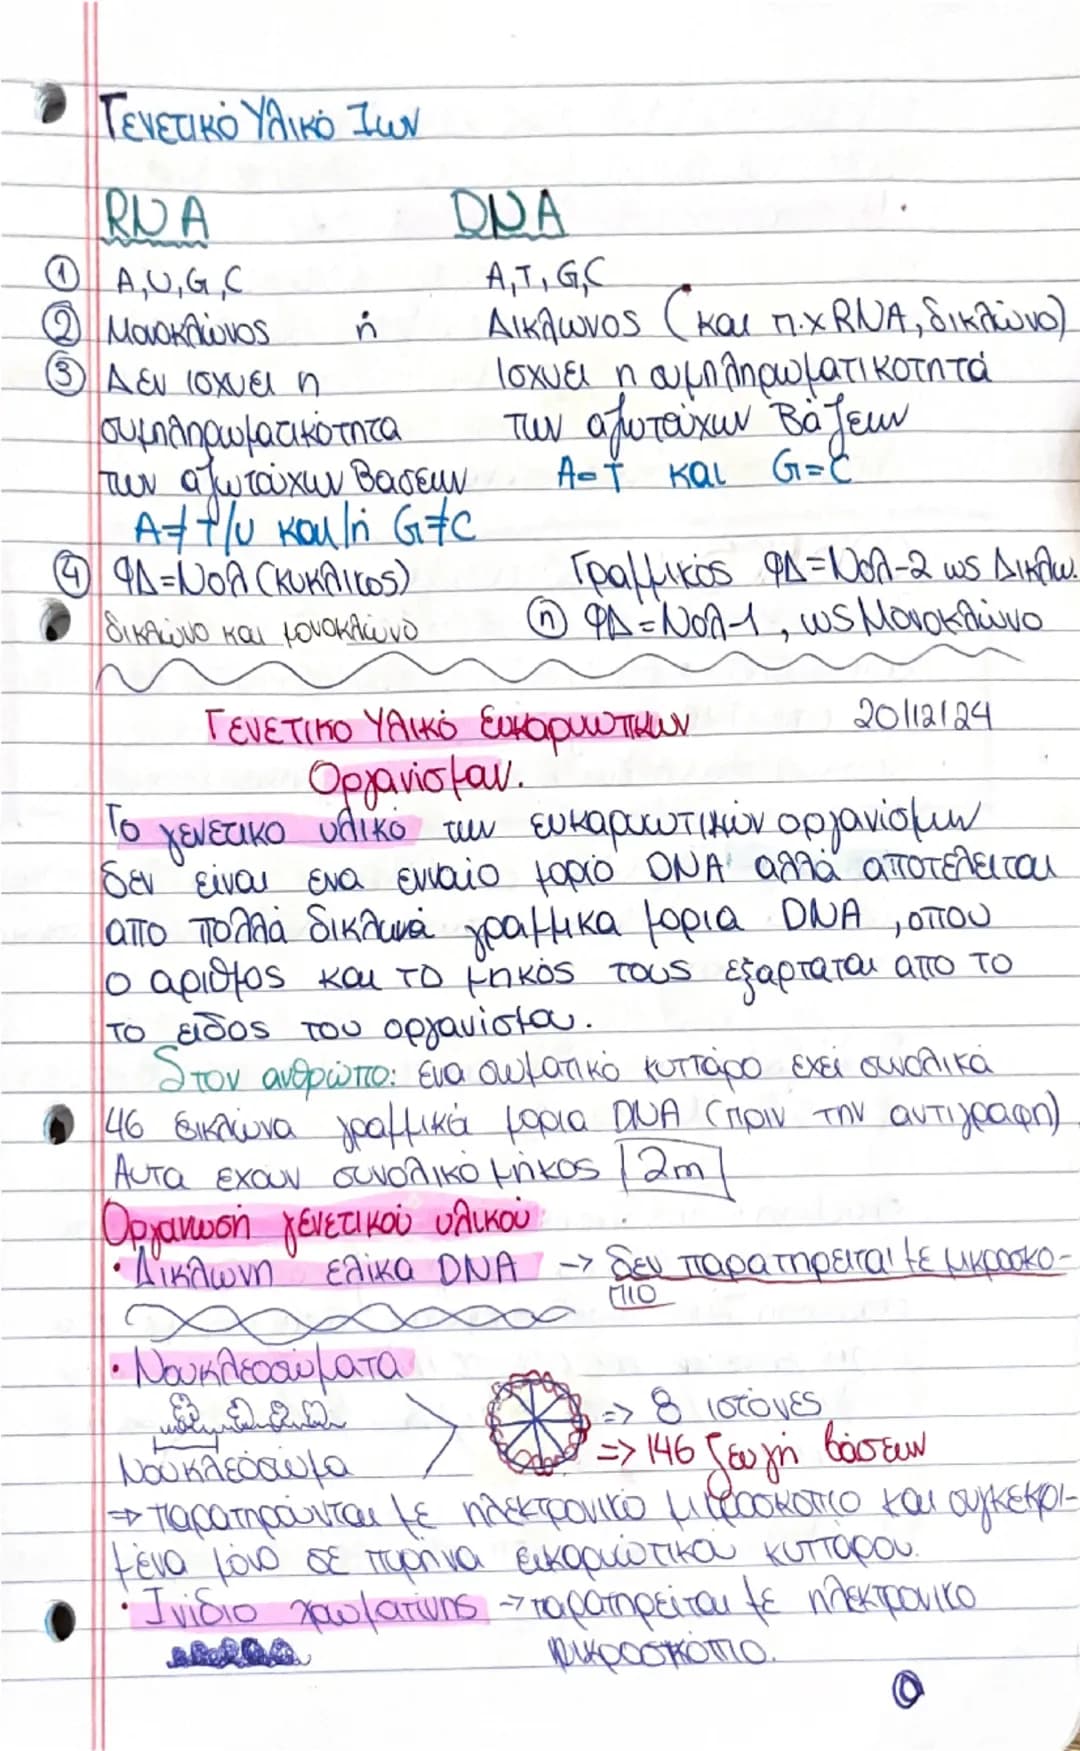 Γενετικό Υλικό Ιων
RNA DNA
① A,U,G,C A,T,G,C
② Μονοκλώνος ή Δικλωνος (και π.χ RNA, δικλώνο)
③ Δεν ισχυει η Ισχυει η συμπληρωματικοτητά
συμπληρωματικότητα των αζωτούχων Βάζεων
των αζωτούχων Βασεων A=T και G=C
A≠T/U και/ή G≠C
④ ΦΔ=Νολ (κυκλικος) Γραμμικός ΦΔ=Νολ-2 ως Δικλω.
δικλώνο και μονοκλώνο ⓗ ΦΔ=Νολ-1, ως Μονοκλώνο
Γενετικο Υλικό Ευκαρυωτικων 20/12/24
Οργανισμων.
Το γενετικο υλικό των ευκαρυωτικών οργανισμων
δεν είναι ενα ενιαίο μοριο DNA αλλά αποτελειται
απο πολλά δικλωνά γραμμικα μορια DNA, οπου
ο αριθμος και το μηκος τους εξαρταται απο το
το ειδος του οργανισμου.
Στον ανθρώπο: ενα σωματικό κυτταρο εχει συνολικά
46 δικλωνα γραμμικά μορια DNA (πριν την αντιγραφη)
Αυτα εχουν συνολικό μήκος 2m
Οργανωσή γενετικού υλικού:
• Δικλωνη ελικα DNA -> δεν παρατηρειται με μικροσκο-
πιο
• Νουκλεοσώματα
=> 8 ιστόνες
=> 146 ζευγή βάσεων
Νουκλεόσωμα
=> παρατηρούνται με ηλεκτρονικό μικροσκοπιο και συγκεκρι-
μένα μόνο σε πυρήνα ευκαρυωτικού κυτταρου.
• Ινίδιο χρωματινης -> παρατηρείται με ηλεκτρονικο
μικροσκόπιο.